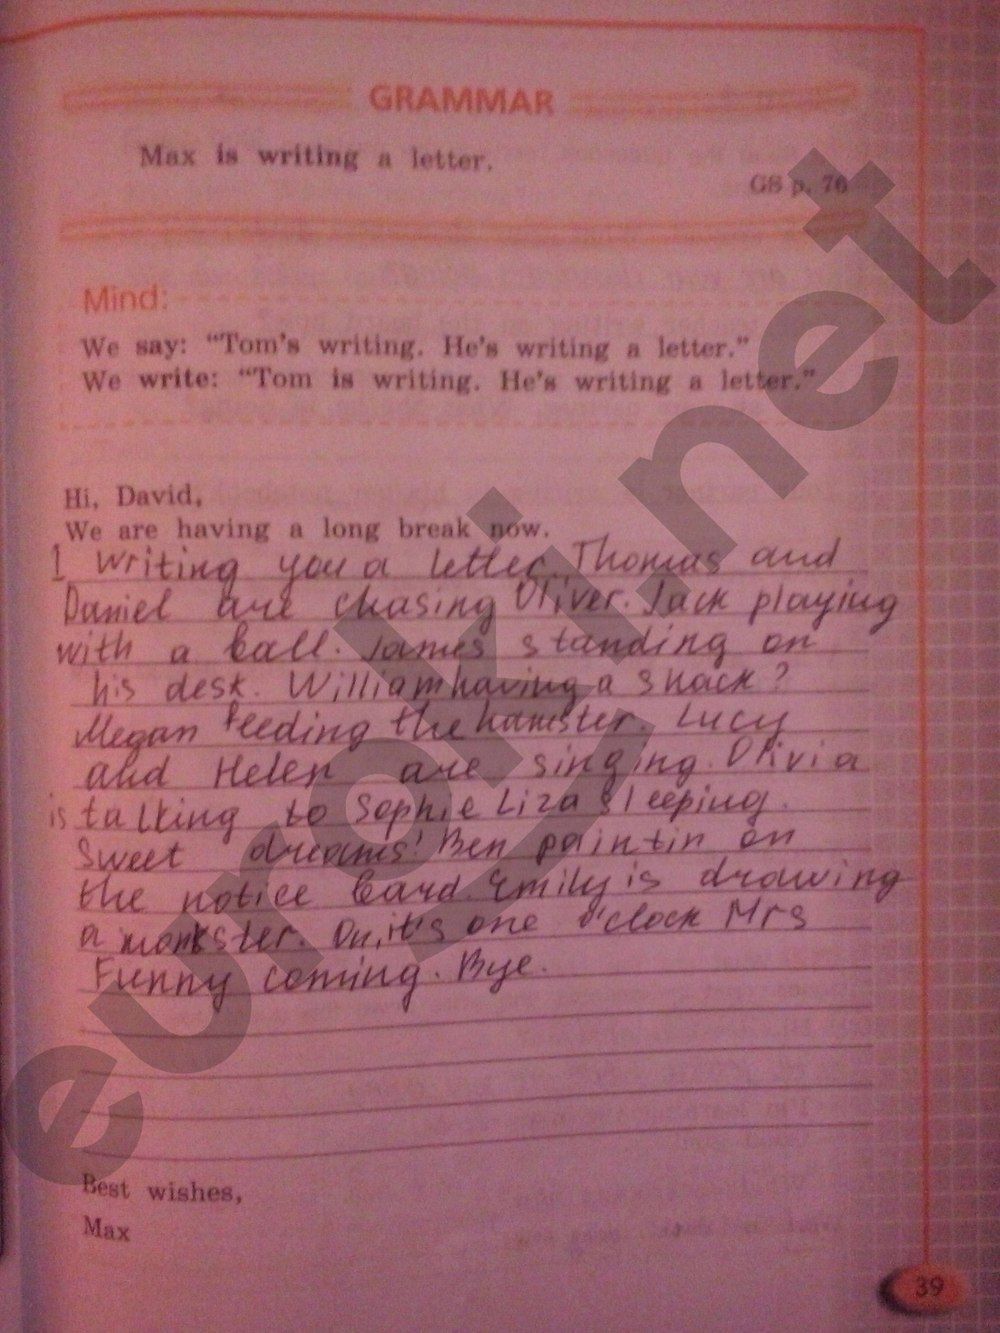 GRAMMAR
Max is writing a letter.
GS p. 76
Mind:
We say: "Tom's writing. He's writing a letter."
We write: "Tom is writing. He's writing a letter."
Hi, David,
We are having a long break now.
I writing you a letter. Thomas and
Daniel are chasing Oliver. Jack playing
with a ball. James standing on
his desk. William having a snack?
Megan feeding the hamster. Lucy
and Helen are singing. Olivia
is talking to Sophie Liza sleeping.
Sweet dreams! Ben paintin on
the notice board. Emily is drawing
a monster. On, it's one o'clock Mrs
Funny coming. Bye.
Best wishes,
Max
39
euroki.net